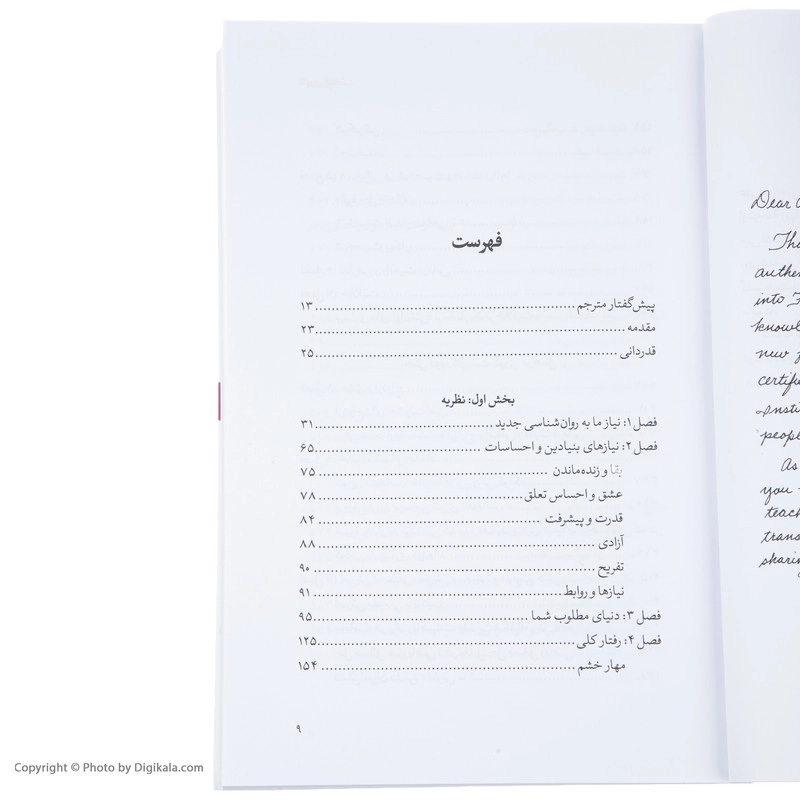 فهرست
پیش‌گفتار مترجم ............ ۱۳
مقدمه ............ ۲۳
قدردانی ............ ۲۵
بخش اول: نظریه
فصل ۱: نیاز ما به روان‌شناسی جدید ............ ۳۱
فصل ۲: نیازهای بنیادین و احساسات ............ ۶۵
بقا و زنده‌ماندن ............ ۷۵
عشق و احساس تعلق ............ ۷۸
قدرت و پیشرفت ............ ۸۴
آزادی ............ ۸۸
تفریح ............ ۹۰
نیازها و روابط ............ ۹۱
فصل ۳: دنیای مطلوب شما ............ ۹۵
فصل ۴: رفتار کلی ............ ۱۲۵
مهار خشم ............ ۱۵۴
۹
Dear
into
new
As
you
Copyright © Photo by Digikala.com